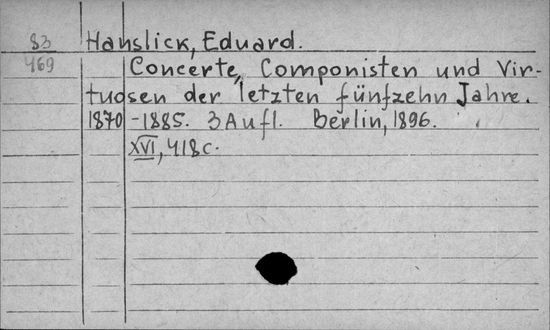 83 Hanslick, Eduard.
469 Concerte, Componisten und Vir-
tuosen der letzten fünfzehn Jahre.
1870-1885. 3 Aufl. Berlin, 1896.
XVI, 418c.